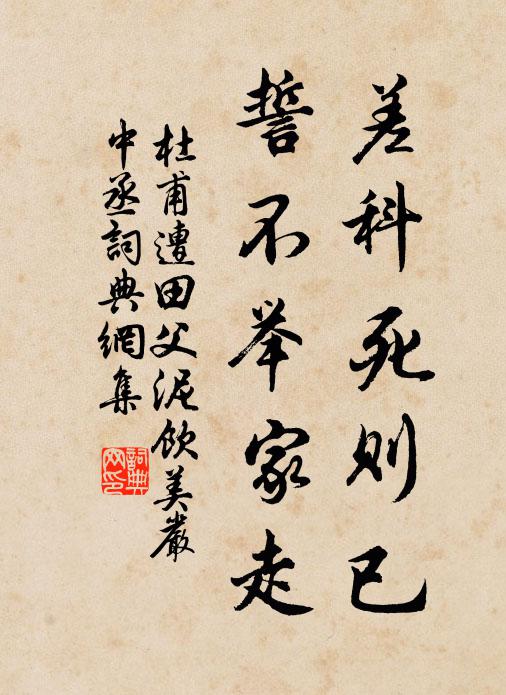 差科死则已
誓不举家走
杜甫遭田父泥饮美严
中丞詞典網集
詞典网印